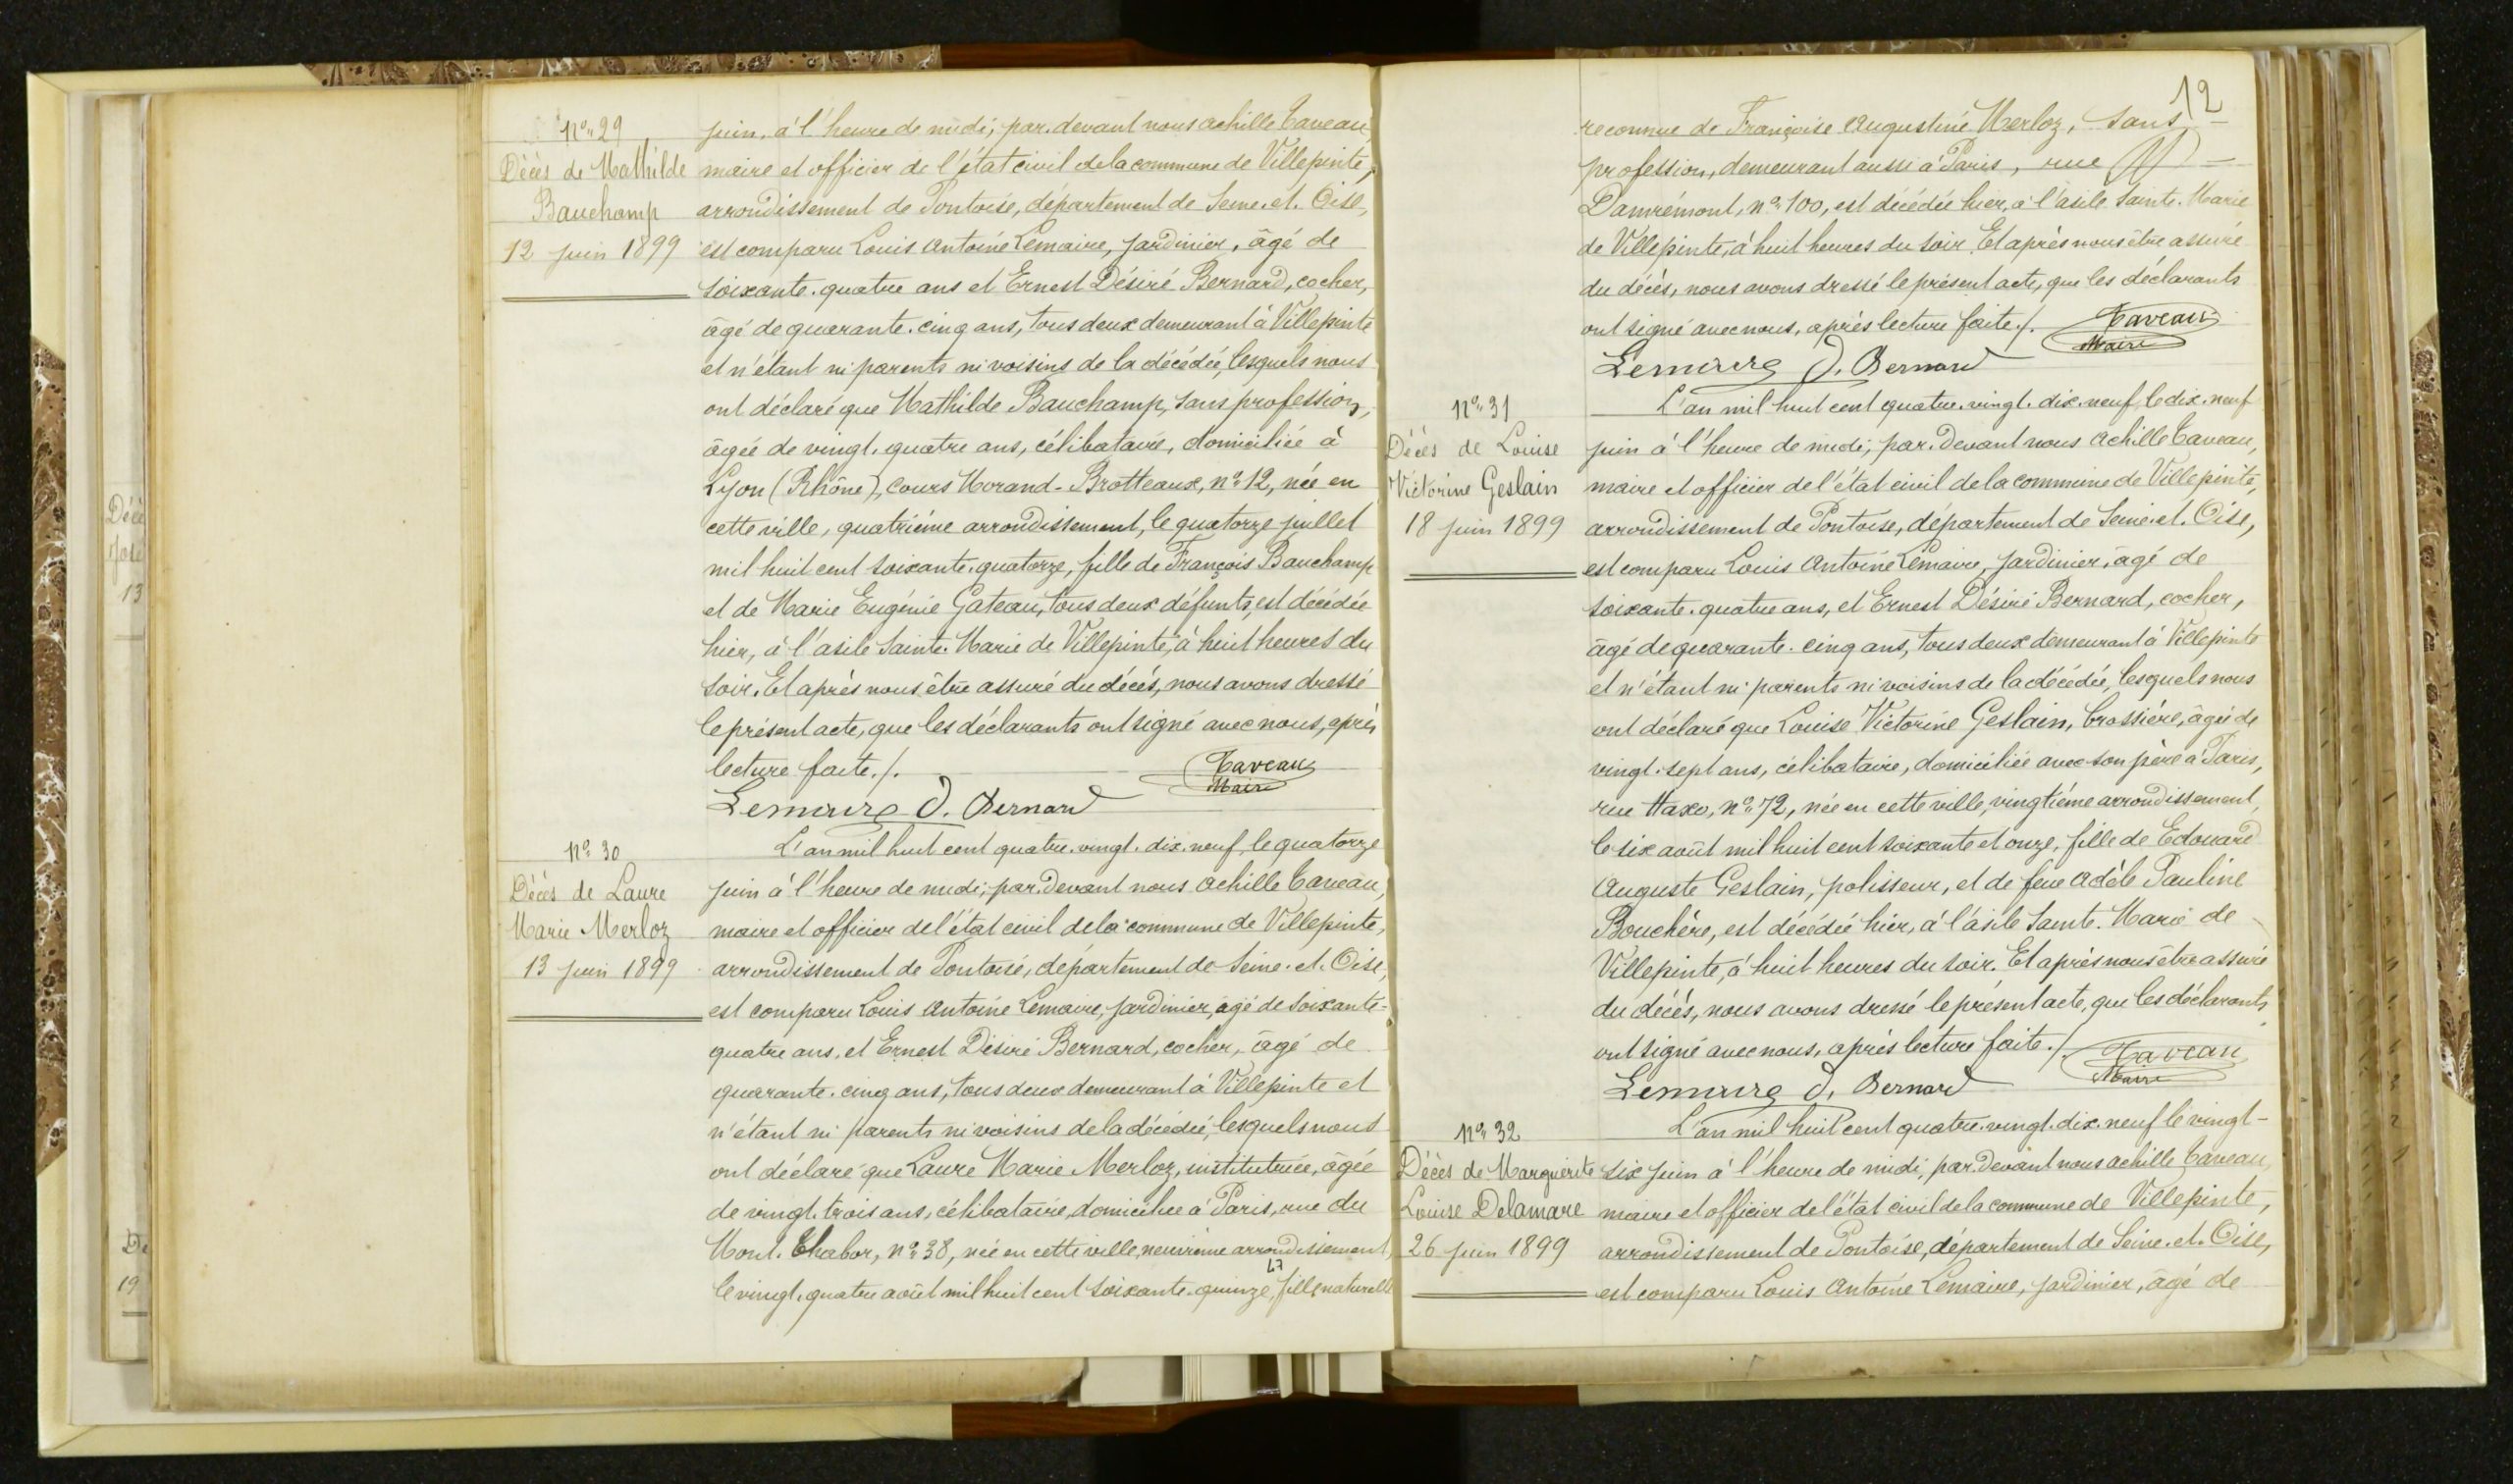 Décè
José
13
De
19
n° 29
Décès de Mathilde
Bauchamp
12 juin 1899
juin, à l'heure de midi, par devant nous Achille Caveau
maire et officier de l'état civil de la commune de Villepinte,
arrondissement de Pontoise, département de Seine-et-Oise,
est comparu Louis Antoine Lemaire, jardinier, âgé de
soixante-quatre ans et Ernest Désiré Bernard, cocher,
âgé de quarante-cinq ans, tous deux demeurant à Villepinte
et n'étant ni parents ni voisins de la décédée, lesquels nous
ont déclaré que Mathilde Bauchamp, sans profession,
âgée de vingt-quatre ans, célibataire, domiciliée à
Lyon (Rhône), cours Morand-Brotteaux, n° 12, née en
cette ville, quatrième arrondissement, le quatorze juillet
mil huit cent soixante-quatorze, fille de François Bauchamp
et de Marie Eugénie Gateau, tous deux défunts, est décédée
hier, à l'asile Sainte-Marie de Villepinte, à huit heures du
soir. Et après nous être assuré du décès, nous avons dressé
le présent acte, que les déclarants ont signé avec nous, après
lecture faite./.
Caveau
Maire
Lemaire D. Bernard
n° 30
Décès de Laure
Marie Merloz
13 juin 1899
L'an mil huit cent quatre-vingt-dix-neuf, le quatorze
juin à l'heure de midi, par devant nous Achille Caveau,
maire et officier de l'état civil de la commune de Villepinte,
arrondissement de Pontoise, département de Seine-et-Oise,
est comparu Louis Antoine Lemaire, jardinier, âgé de soixante-
quatre ans, et Ernest Désiré Bernard, cocher, âgé de
quarante-cinq ans, tous deux demeurant à Villepinte et
n'étant ni parents ni voisins de la décédée, lesquels nous
ont déclaré que Laure Marie Merloz, institutrice, âgée
de vingt-trois ans, célibataire, domiciliée à Paris, rue du
Mont-Thabor, n° 38, née en cette ville, neuvième arrondissement,
le vingt-quatre août mil huit cent soixante-quinze, fille naturelle
12
reconnue de Françoise Augustine Merloz, sans
profession, demeurant aussi à Paris, rue
Damrémont, n° 100, est décédée hier, à l'asile Sainte-Marie
de Villepinte, à huit heures du soir. Et après nous être assuré
du décès, nous avons dressé le présent acte, que les déclarants
ont signé avec nous, après lecture faite./.
Caveau
Maire
Lemaire D. Bernard
n° 31
Décès de Louise
Victorine Geslain
18 juin 1899
L'an mil huit cent quatre-vingt-dix-neuf, le dix-neuf
juin à l'heure de midi, par devant nous Achille Caveau,
maire et officier de l'état civil de la commune de Villepinte,
arrondissement de Pontoise, département de Seine-et-Oise,
est comparu Louis Antoine Lemaire, jardinier, âgé de
soixante-quatre ans, et Ernest Désiré Bernard, cocher,
âgé de quarante-cinq ans, tous deux demeurant à Villepinte
et n'étant ni parents ni voisins de la décédée, lesquels nous
ont déclaré que Louise Victorine Geslain, brossière, âgée de
vingt-sept ans, célibataire, domiciliée avec son père à Paris,
rue Haxo, n° 72, née en cette ville, vingtième arrondissement,
le six août mil huit cent soixante et onze, fille de Edouard
Auguste Geslain, polisseur, et de feue Adèle Pauline
Bouchère, est décédée hier, à l'asile Sainte-Marie de
Villepinte, à huit heures du soir. Et après nous être assuré
du décès, nous avons dressé le présent acte, que les déclarants
ont signé avec nous, après lecture faite./.
Caveau
Maire
Lemaire D. Bernard
n° 32
Décès de Marguerite
Louise Delamare
26 juin 1899
L'an mil huit cent quatre-vingt-dix-neuf le vingt-
six juin à l'heure de midi, par devant nous Achille Caveau,
maire et officier de l'état civil de la commune de Villepinte,
arrondissement de Pontoise, département de Seine-et-Oise,
est comparu Louis Antoine Lemaire, jardinier, âgé de